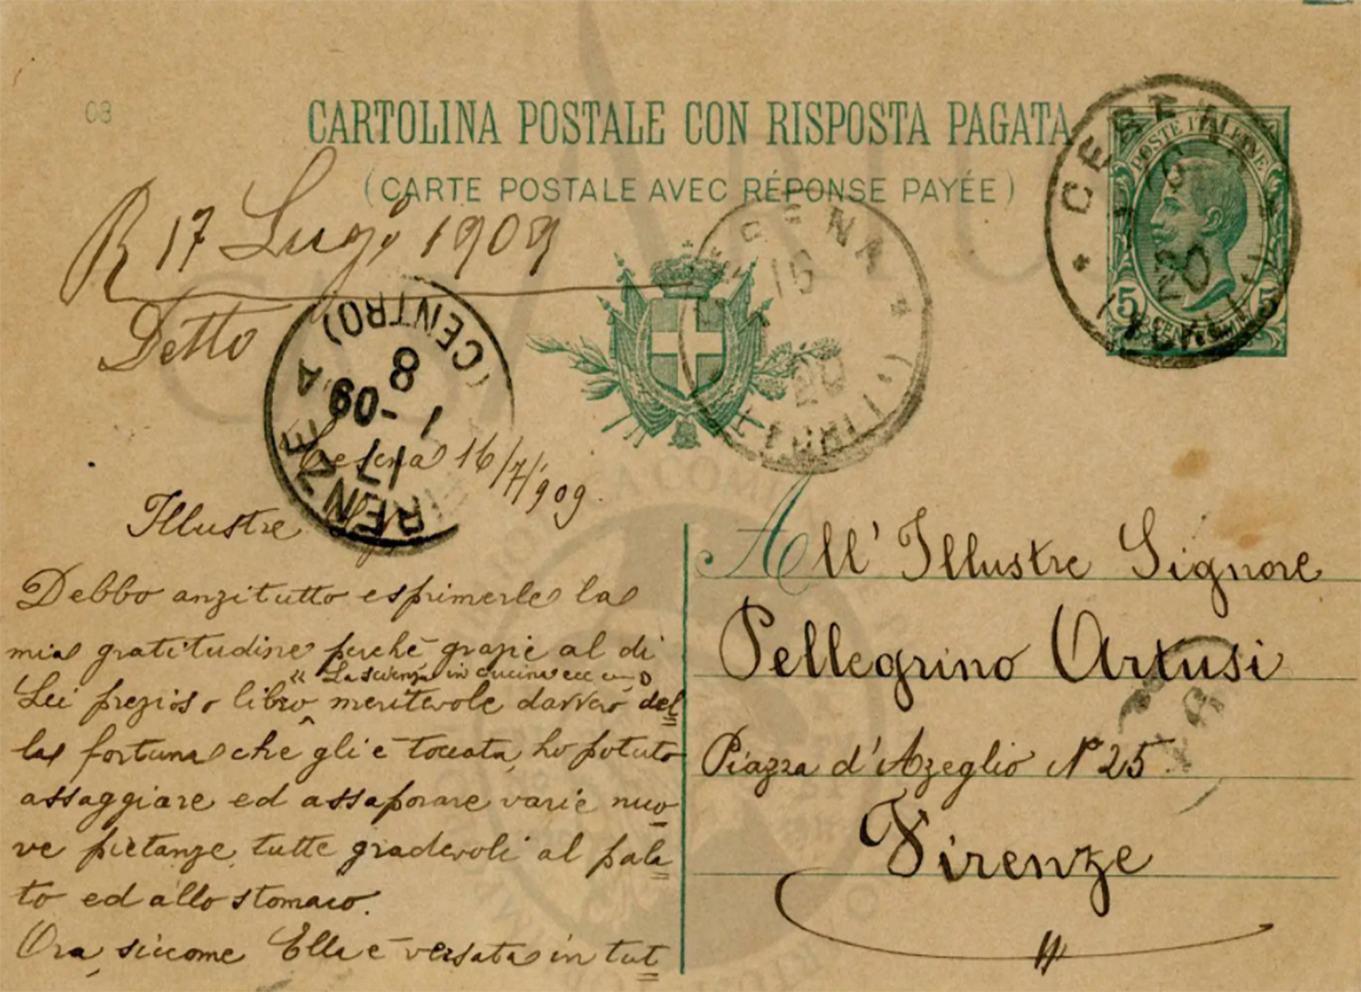 08
CARTOLINA POSTALE CON RISPOSTA PAGATA
(CARTE POSTALE AVEC RÉPONSE PAYÉE)
R 17 Luglio 1909
Detto
CESENA
(FORLI)
20
POSTE ITALIANE
5 5
CESENA
16
20
(FORLI)
FIRENZE
(CENTRO)
17
-09
8
Cesena 16/7/909.
Illustre
Debbo anzitutto esprimerle la
mia gratitudine perchè grazie al di
Lei prezioso libro "La scienza in cucina ecc meritevole davvero del
la fortuna che gli è toccata, ho potuto
assaggiare ed assaporare varie nuo
ve pietanze, tutte gradevoli al pala
to ed allo stomaco.
Ora, siccome Ella è versata in tut
All' Illustre Signore
Pellegrino Artusi
Piazza d'Azeglio N° 25.
Firenze